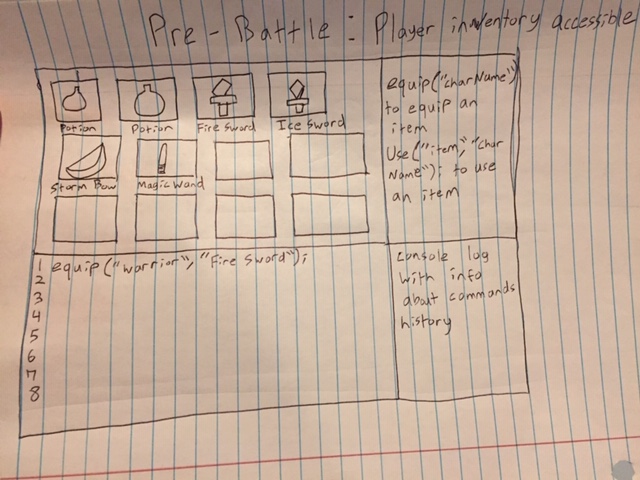 Pre-Battle: Player inventory accessible
Potion
Potion
Fire Sword
Ice Sword
Storm Bow
Magic Wand
equip("charName")
to equip an
item
Use("item","char
Name"); to use
an item
1 equip("warrior", "Fire Sword");
2
3
4
5
6
7
8
Console log
with info
about commands
history